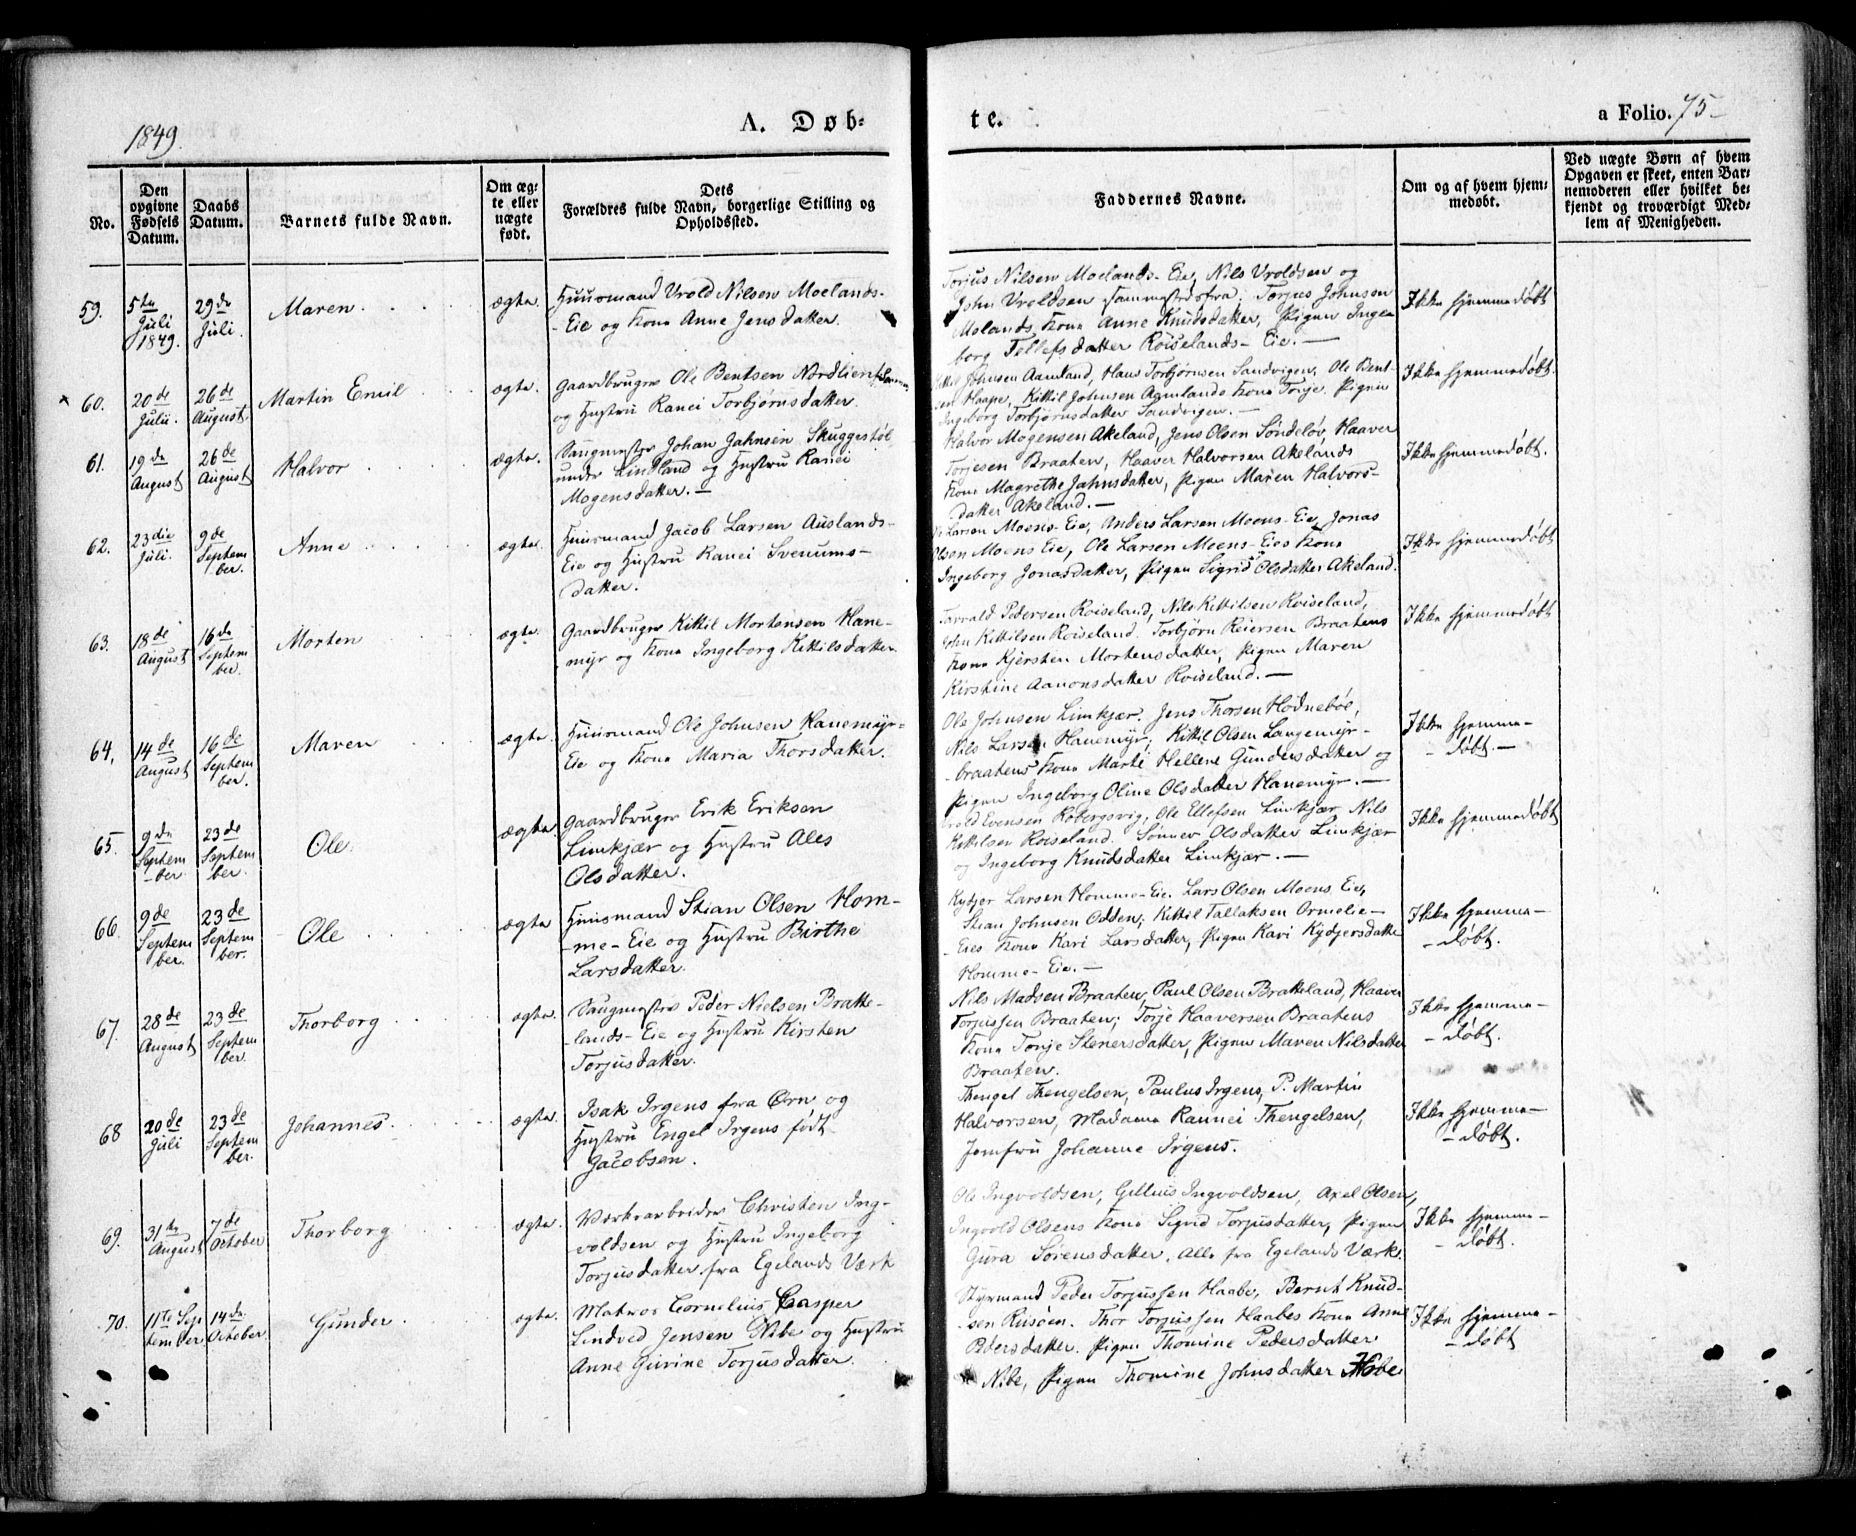 1849.
A. Døb-
te.
a Folio. 75
No.
Den opgivne Fødsels Datum.
Daabs Datum.
Barnets fulde Navn.
Om ægte eller uægte født.
Dets Forældres fulde Navn, borgerlige Stilling og Opholdssted.
Faddernes Navne.
Om og af hvem hjemmedøbt.
Ved uægte Børn af hvem Opgaven er skeet, enten Barnemoderen eller hvilket bekjendt og troværdigt Medlem af Menigheden.
59.
5te Juli 1849.
29de Juli.
Maren
ægte.
Huusmand Vrold Nilsen Moelands-
Eie og Kone Anne Jensdatter.
Torjus Nilsen Moelands-Eie, Nils Vroldsen og
John Vroldsen sammestedsfra. Torjus Johnsen
Molands Kone Anne Knudsdatter, Pigen Inge
borg Tellefsdatter Roiselands-Eie.
Ikke hjemmedøbt
60.
20de Julii.
26de August.
Martin Emil
ægte.
Gaardbruger Ole Bentsen Nordlien
og Hustru Ranei Torbjørnsdatter
Johnsen Aamland, Hans Torbjørnsen Sandvigen, Ole Bent-
sen Haape, Kittil Johnsen Aamlands Kone Torje. Pigen
Ingeborg Torbjørnsdatter Sandvigen.
Ikke hjemmedøbt.
61.
19de August
26de August
Halvor
ægte.
Saugmester Johan Jahnsen Skuggestøl
under Lindland og Hustru Ranei
Mogensdatter.
Halvor Mogensen Akeland, Jens Olsen Søndeløv, Haaver
Torjesen Braaten, Haaver Halvorsen Akelands
Kone Magrethe Jahnsdatter, Pigen Maren Halvors-
datter Akeland.
Ikke hjemmedøbt.
62.
23die Juli.
9de September.
Anne
ægte.
Huusmand Jacob Larsen Auslands-
Eie og Hustru Ranei Svenums-
datter.
Larsen Moens-Eie, Anders Larsen Moens-Eie, Jonas
Olsen Moens Eie, Ole Larsen Moens-Eies Kone
Ingeborg Jonasdatter, Pigen Sigrid Olsdatter Akeland.
Ikke hjemmedøbt
63.
18de August
16de September.
Morten
ægte.
Gaardbruger Kittil Mortensen Hane-
myr og Kone Ingeborg Kittilsdatter.
Tarrald Pedersen Roiseland, Nils Kittilsen Roiseland,
John Kittilsen Roiseland. Torbjørn Reiersen Braatens
Kone Kjersten Mortensdatter, Pigen Maren
Kirstine Aanonsdatter Roiseland.
Ikke hjemmedøbt
64.
14de August
16de September.
Maren
ægte.
Huusmand Ole Johnsen Hanemyr-
Eie og Kone Maria Thorsdatter.
Ole Johnsen Limkjær. Jens Thorsen Hødnebøe,
Nils Larsen Hanemyr, Kittil Olsen Langemyr-
-braatens Kone Marte Hellene Gundersdatter og
Pigen Ingeborg Oline Olsdatter Hanemyr.
Ikke hjemme-
-døbt.
65.
9de September.
23de September.
Ole
ægte.
Gaardbruger Erik Eriksen
Limkjær og Hustru Ales
Olsdatter.
Evensen Robergsvig, Ole Ellefsen Limkjær, Nils
Kittilsen Roiseland. Sønnev Olsdatter Limkjær
og Ingeborg Knudsdatter Limkjær.
Ikke hjemmedøbt
66.
9de September.
23de September.
Ole
ægte.
Huusmand Stian Olsen Hom-
me-Eie og Hustru Birthe
Larsdatter.
Kydjer Larsen Homme-Eie. Lars Olsen Moens Eie,
Stian Johnsen Odden; Kittil Tallaksen Ormelie-
Eies Kone Kari Larsdatter, Pigen Kari Kydjersdatte
Homme-Eie.
Ikke hjemme-
-døbt.
67.
28de August
23de September.
Thorborg
ægte.
Saugmester Peder Nielsen Bratte-
lands-Eie og Hustru Kirsten
Torjusdatter.
Nils Madsen Braaten, Paul Olsen Bratteland, Haaver
Torjussen Braaten; Torje Haaversen Braatens
Kone Tonje Stenersdatter, Pigen Maren Nilsdatter
Braaten.
Ikke hjemme-
-døbt.
68
20de Juli
23de September.
Johannes.
ægte.
Isak Irgens fra Ørn og
Hustru Engel Irgens født
Jacobsen.
Thengel Thengelsen, Paulus Irgens, P. Martin
Halvorsen, Madame Rannei Thengelsen,
Jomfru Johanne Irgens.
Ikke hjemme-
-døbt.
69.
31te August
7de October
Thorborg
ægte.
Værksarbeider Christen Ing-
voldsen og Hustru Ingeborg
Torjusdatter fra Egelands Værk
Ole Ingvoldsen, Gellius Ingvoldsen, Axel Olsen,
Ingvold Olsens Kone Sigrid Torjusdatter, Pigen
Gura Sørensdatter. Alle fra Egelands Værk.
Ikke hjemme-
-døbt.
70.
11te September
14de October.
Gunder
ægte.
Matros Cornelius Casper
Lindved Jensen Nibe og Hustru
Anne Gurine Torjusdatter.
Styrmand Peder Torjussen Haabe, Bernt Knud-
sen Risøen. Thor Torjussen Haabes Kone Anne
Pdersdatter. Pigen Thomine Pedersdatter
Nibe, Pigen Thomine Johnsdatter
Ikke hjemme-
-døbt